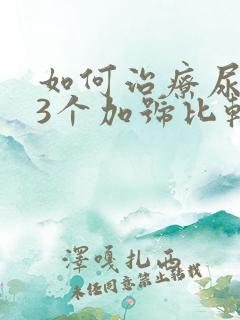 如何治疗尿
3个加号比较
澤嘎扎西
未经同意禁止转载